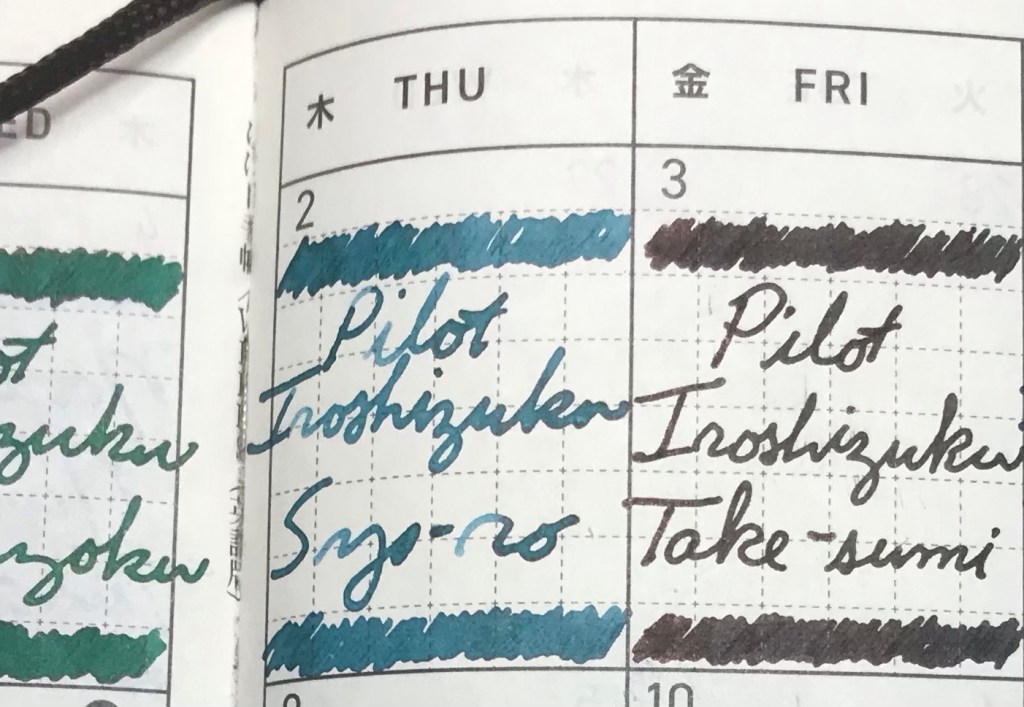 ED
ot
zuku
yoku
木 THU
2
Pilot
Iroshizuku
Syo-ro
9
金 FRI
3
Pilot
Iroshizuku
Take-sumi
10